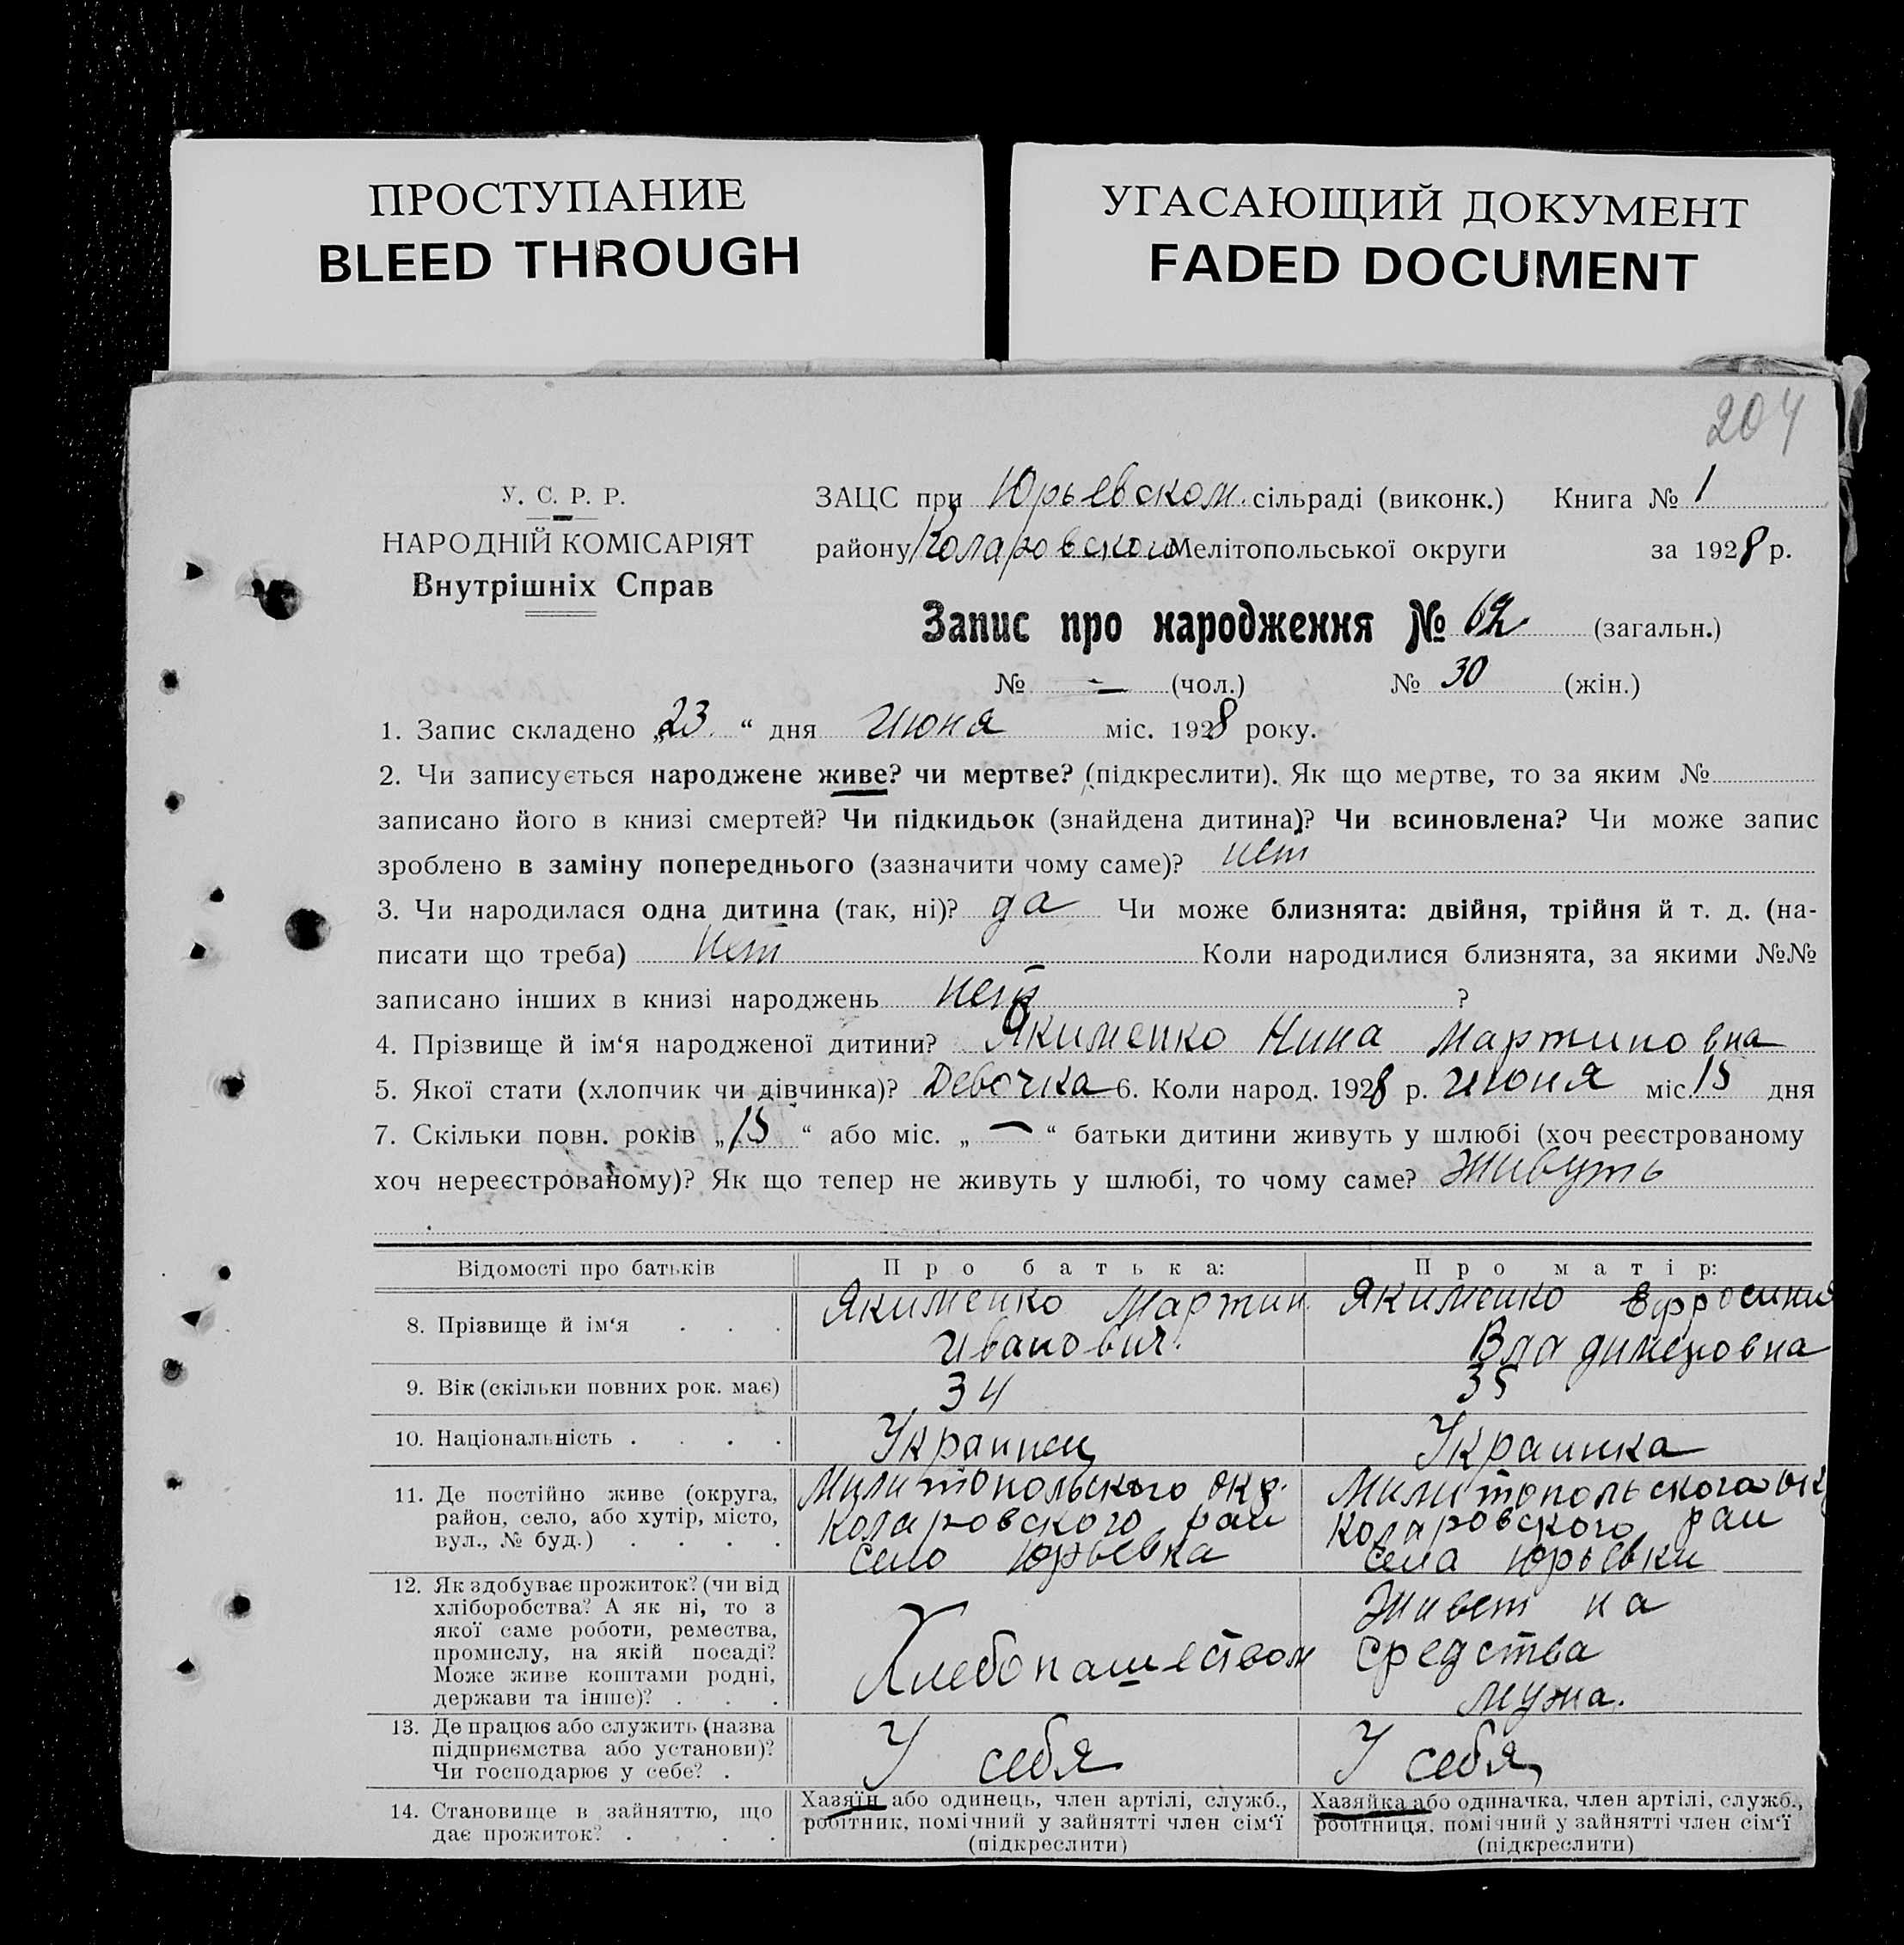 ПРОСТУПАНИЕ
BLEED THROUGH
УГАСАЮЩИЙ ДОКУМЕНТ
FADED DOCUMENT
204
У. С. Р. Р.
НАРОДНІЙ КОМІСАРІЯТ
Внутрішніх Справ
ЗАЦС при Юрьевском сільраді (виконк.) Книга № 1
району Коларовского Мелітопольської округи за 1928 р.
Запис про народження № 62 (загальн.)
№ — (чол.) № 30 (жін.)
1. Запис складено „23“ дня июня міс. 1928 року.
2. Чи записується народжене живе? чи мертве? (підкреслити). Як що мертве, то за яким №
записано його в книзі смертей? Чи підкидьок (знайдена дитина)? Чи всиновлена? Чи може запис
зроблено в заміну попереднього (зазначити чому саме)? нет
3. Чи народилася одна дитина (так, ні)? да Чи може близнята: двійня, трійня й т. д. (на-
писати що треба) нет Коли народилися близнята, за якими №№
записано інших в книзі народжень нет ?
4. Прізвище й ім‘я народженої дитини? Якименко Нина Мартиновна
5. Якої стати (хлопчик чи дівчинка)? Девочка 6. Коли народ. 1928 р. июня міс. 15 дня
7. Скільки повн. років „15“ або міс. „—“ батьки дитини живуть у шлюбі (хоч реєстрованому
хоч нереєстрованому)? Як що тепер не живуть у шлюбі, то чому саме? Живуть
Відомості про батьків Про батька: Про матір:
8. Прізвище й ім‘я . . . Якименко Мартин Якименко Ефросиния
Иванович. Владимеровна
9. Вік (скільки повних рок. має) 34 35
10. Національність . . . . Украинец Украинка
11. Де постійно живе (округа,
район, село, або хутір, місто,
вул., № буд.) . . . .
Милитопольского окр.
Коларовского раи
село Юрьевка
Милитопольского окр
Коларовского раи
села Юрьевки
12. Як здобуває прожиток? (чи від
хліборобства? А як ні, то з
якої саме роботи, ремества,
промислу, на якій посаді?
Може живе коштами родні,
держави та інше)? . . .
Хлебопашеством
Живет на
средства
мужа.
13. Де працює або служить (назва
підприємства або установи)?
Чи господарює у себе? .
У себя
У себя
14. Становище в зайняттю, що
дає прожиток? . . . .
Хазяїн або одинець, член артілі, служб.,
робітник, помічний у зайнятті член сім‘ї
(підкреслити)
Хазяйка або одиначка, член артілі, служб.,
робітниця, помічний у зайнятті член сім‘ї
(підкреслити)